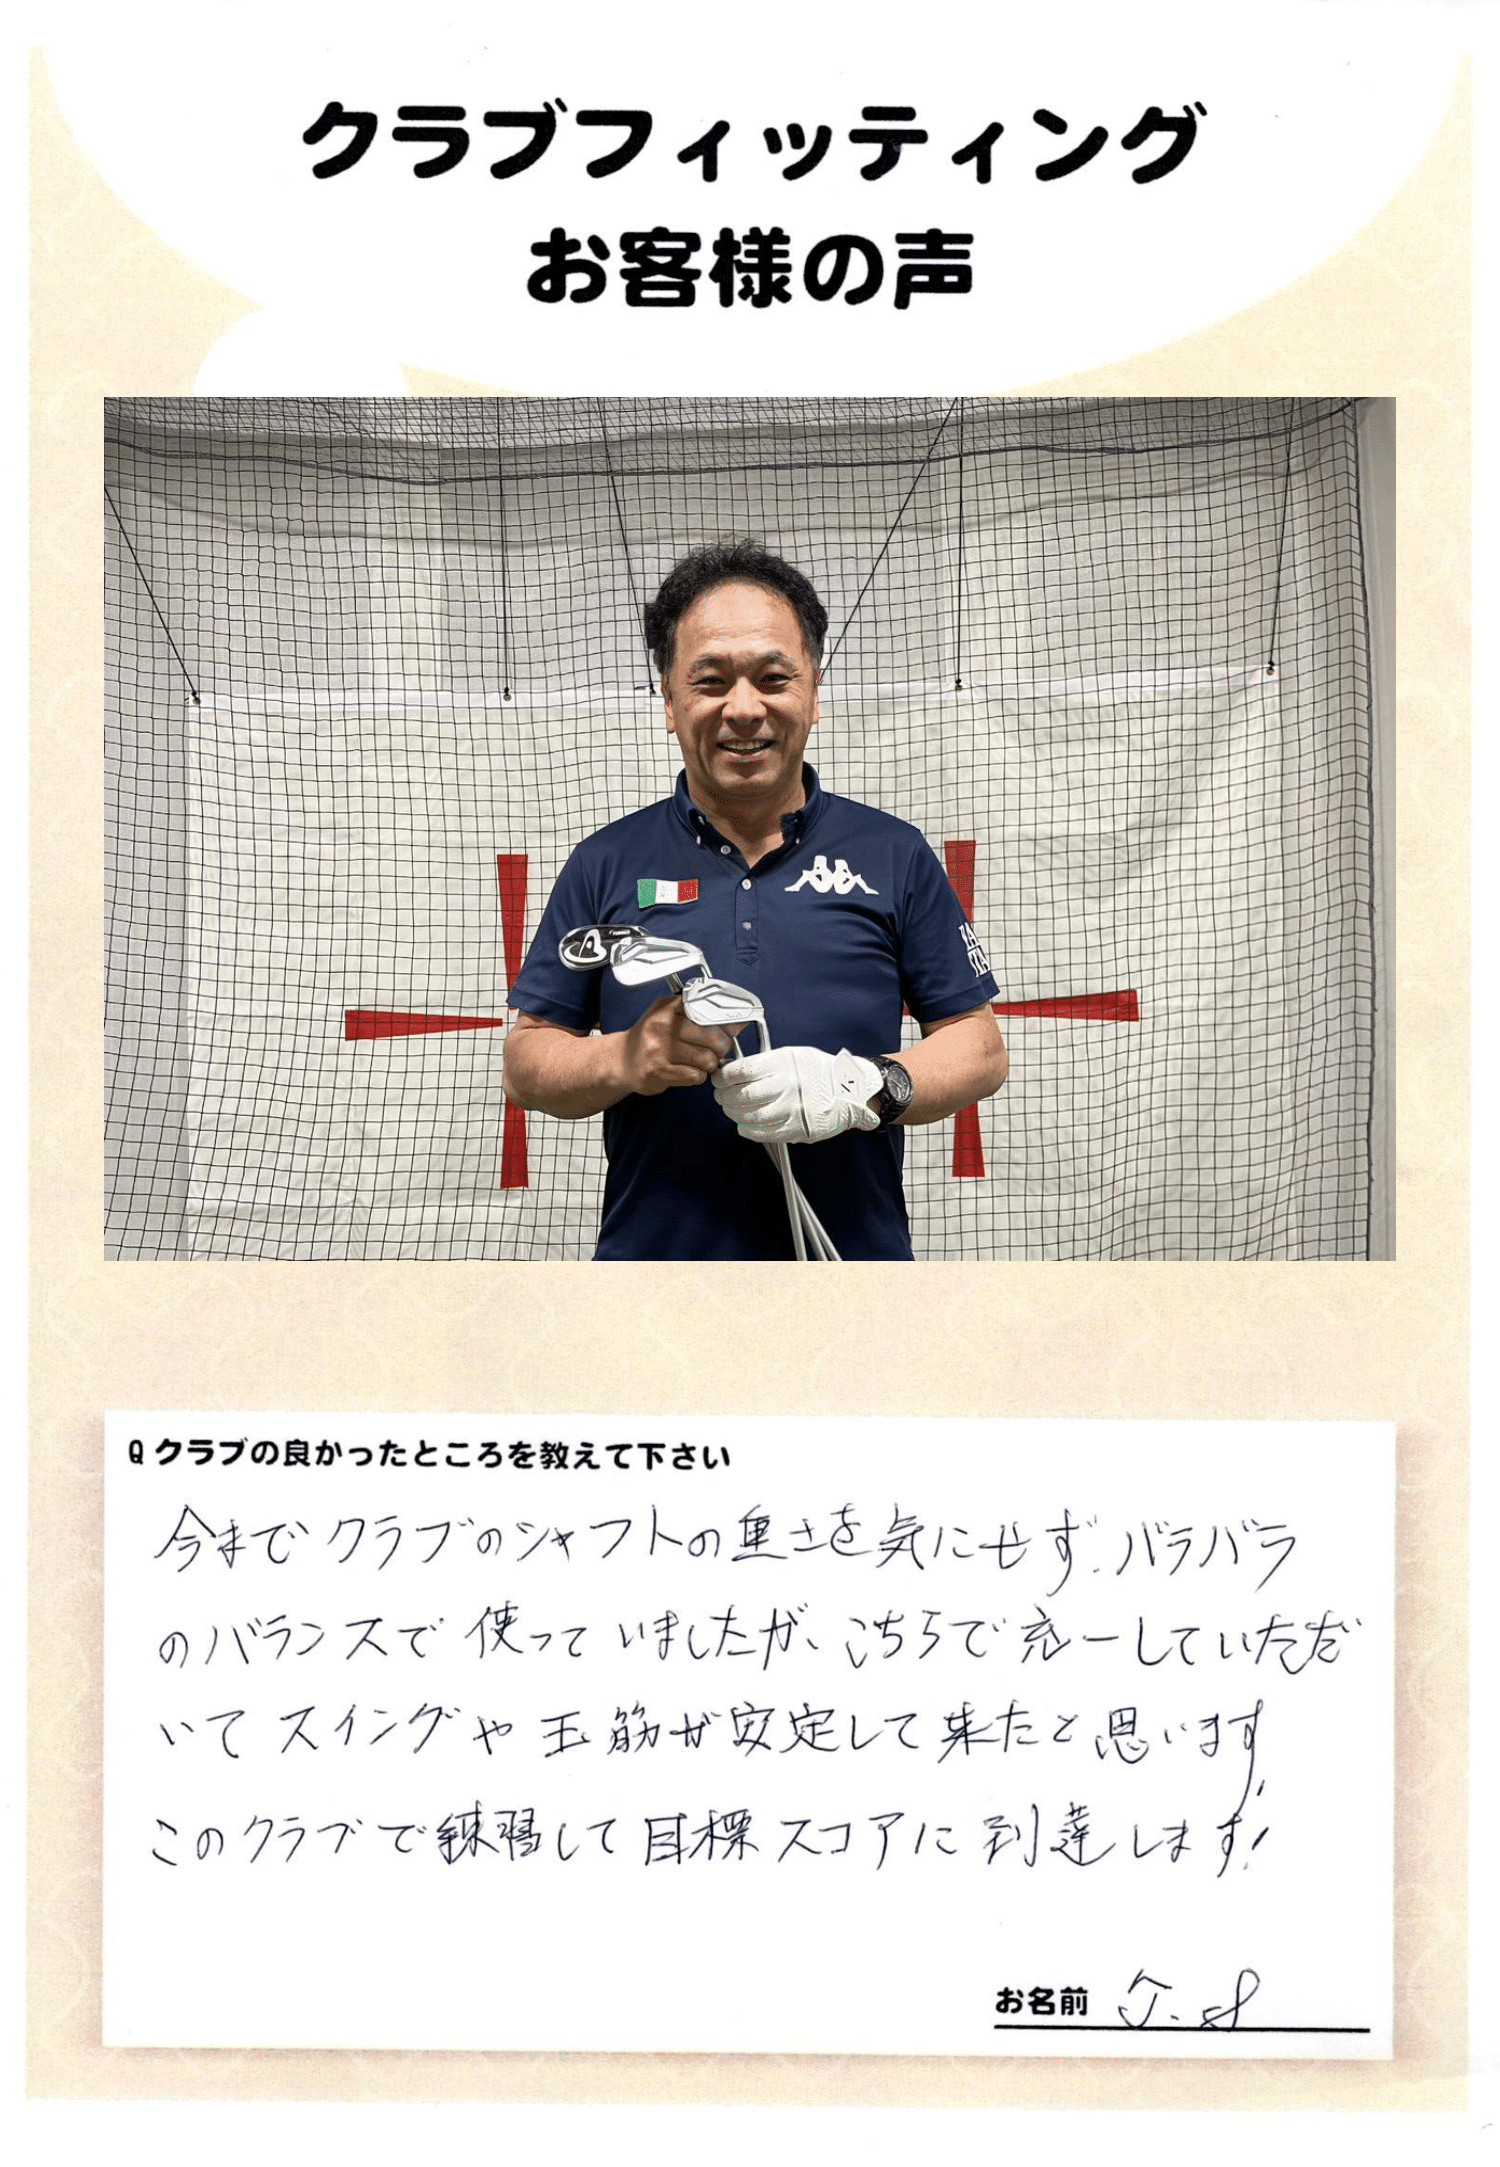 クラブフィッティング
お客様の声
Q クラブの良かったところを教えて下さい
今までクラブのシャフトの重さを気にせず、バラバラ
のバランスで使っていましたが、こちらで統一していただ
いてスイングや玉筋が安定して来たと思います。
このクラブで練習して目標スコアに到達します!
お名前